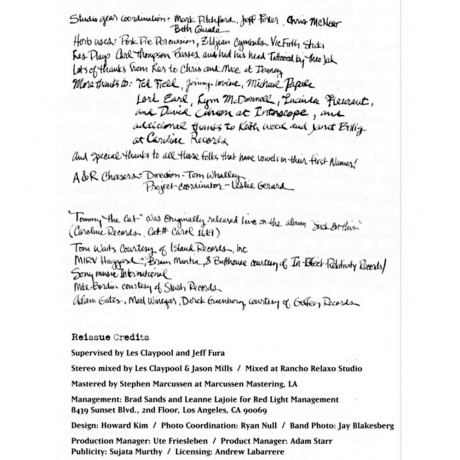 Studio gear coordination: Mark Pitchford, Jeff Porter, Chris McNear
Beth Quade
Herb uses: Pork Pie Percussion, Zildjian Cymbals Vic Firth Sticks
Les Plays Carl Thompson Basses and his head Tattooed by
Lots of thanks from Les to Chris and Mace at
More thanks to: Ted Field, Jimmy Iovine, Michael Papale
Lori Earl, Lynn McDonnell, Lucinda
and David Cohen at Interscope, and
additional thanks to Keith Wood and Janet Billig
at Caroline Records
And special thanks to all those folks that have vowels in their first Names!
A&R Chasers: Direction - Tom Whalley
Project-coordinator - Leslie Gerard
"Tommy the Cat" was Originally released Live on the album "Suck On This"
(Caroline Records, Cat# Carol 1620)
Tom Waits Courtesy of Island Records, Inc
MIRV Haggard, Brain Mantia, & Bufthouse courtesy of In-Black Relativity Records/
Sony music International
Mike Bordin courtesy of Slash Records
Adam Gates, Matt Winegar, Derek Greenberg courtesy of Geffen Records
Reissue Credits
Supervised by Les Claypool and Jeff Fura
Stereo mixed by Les Claypool & Jason Mills / Mixed at Rancho Relaxo Studio
Mastered by Stephen Marcussen at Marcussen Mastering, LA
Management: Brad Sands and Leanne Lajoie for Red Light Management
8439 Sunset Blvd., 2nd Floor, Los Angeles, CA 90069
Design: Howard Kim / Photo Coordination: Ryan Null / Band Photo: Jay Blakesberg
Production Manager: Ute Friesleben / Product Manager: Adam Starr
Publicity: Sujata Murthy / Licensing: Andrew Labarrere